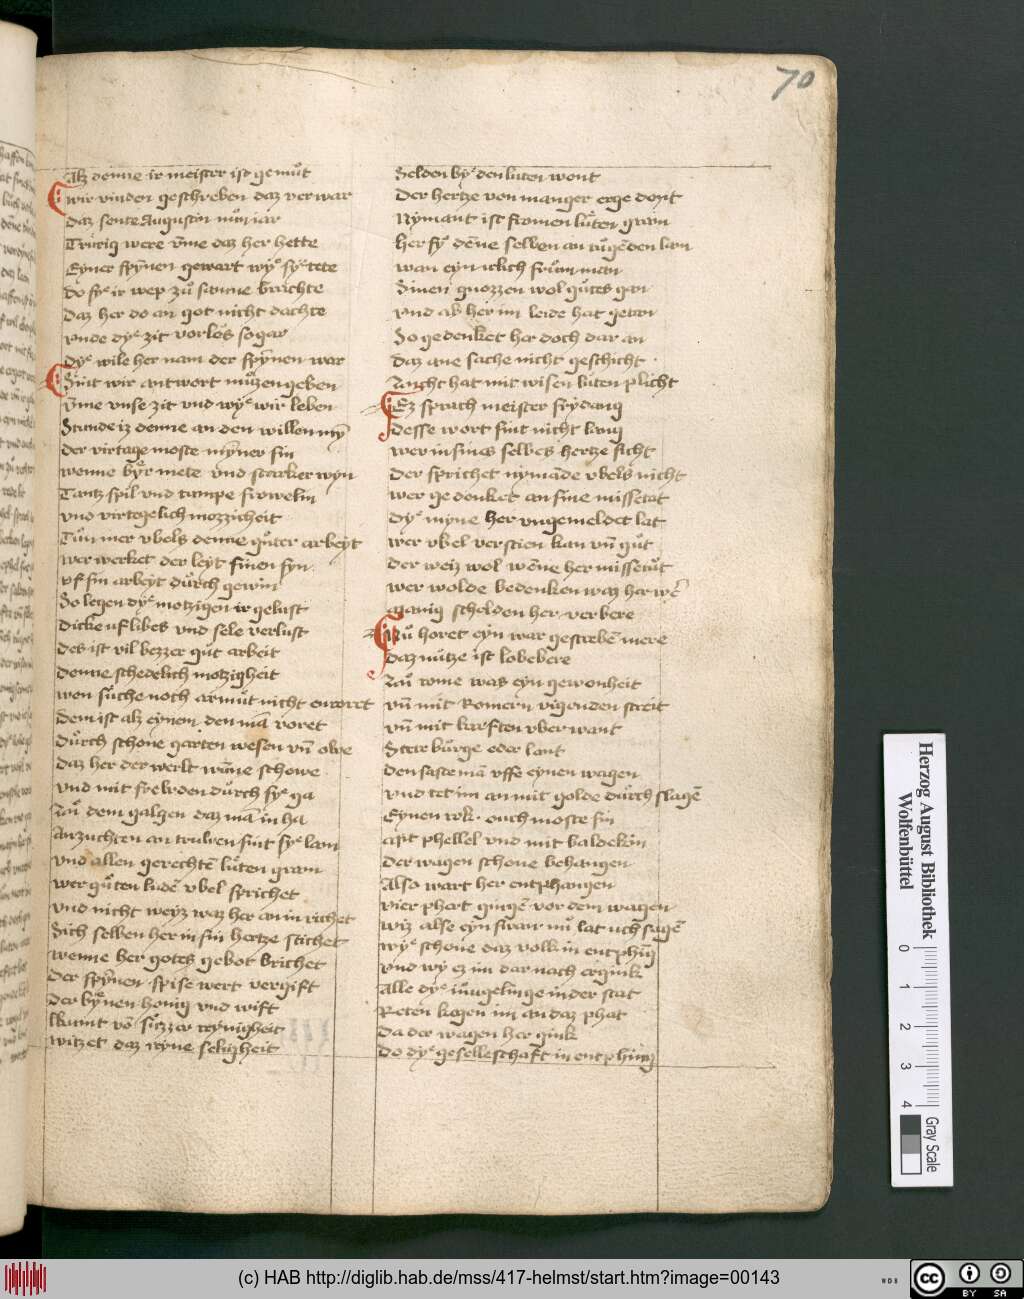 70
Alz denne ir meister ist gemuͦt
wir vinden geschreben daz ver war
daz sente Augustin muͦn iar
Truͤrig were vm̄e daz her hette
Eyner spyn̄en gewart wyͤ syͤ tete
do syͤ ir wep zuͦ samne brachte
daz her do an got nicht dachte
vnde dyͤ zit vorlos so gar
dyͤ wile her nam der spyn̄en war
Sint wir antwort muͤzen geben
vm̄e vnse zit vnd wyͤ wir leben
Stunde iz denne an den willen myn̄
der virtage moste myn̄er sin
wenne byͤr mete vnd starker wyn
Tantz spil vnd tumpe
vnd virtegelich mozzicheit
Tuͦn mer vbels denne guͦter arbeyt
wer werket der leyt sinen syn
vf sin arbeyt duͦrch gewin
So legen dyͤ motzigen ir gelust
dicke uf libes vnd sele verlust
des ist vil bezzer guͦt arbeit
denne schedelich motzigheit
wen suͤche noch armuͦt nicht enroret
dem ist alz eynem den ma̅ voret
duͦrch schone garten wesen vn̄ owe
daz her der werlt wun̄e schowe
vnd mit freẅden duͦrch syͤ ga
Zuͦ dem galgen daz ma̅ in ha
Anzuchten an truwen sint syͤ lam
vnd allen gerechte̅ luͤten gram
wer guͦten lude̅ vbel sprichet
vnd nicht weyz waz her an in richet
Sich selben her in sin hertze stichet
wenne her gotes gebot brichet
der spyn̄en spise wert vergift
der byͤnen honig vnd wift
kumt vo̅ suͤzzer reynigheit
witzet daz ryne seligheit
Selden byͤ den luten wont
Der hertze von manger erge dont
Nymant ist fromen luͤten gram
her syͤ den̄e selben an tuͦge̅den lam
wan eyn iclich fruͦm man
Sinen gnozzen wol guͦtes gan
vnd ab her im leide hat getan
So gedenket her doch dar an
daz ane sache nicht geschicht
Zucht hat mit wisen luͤten plicht
Ez sprach meister frydang
desse wort sint nicht lang
wer in sines selbes hertze sicht
der sprichet nyma̅de vbels nicht
wer gedenket an sine missetat
dyͤ myne her vngemeldet lat
wer vbel verstien kan vn̄ guͦt
der weiz wol wen̄e her missetuͦt
wer wolde bedenken waz her we̅
manig schelden her verbere
Nuͦ horet eyn war geschrebe̅ mere
daz nuͤtze ist lobebere
Zuͦ rome was eyn gewonheit
vn̄ mit Romern vigenden streit
vn̄ mit kraften vber want
Stete buͤrge oder lant
den saste ma̅ vffe eynen wagen
vnd tet im an mit golde duͦrch slage̅
Eynen rok · ouch moste sin
mit phellel vnd mit baldekin
der wagen schone behangen
Also wart her entphangen
vier phert ginge̅ vor dem wagen
wiz alse eyn swan nuͦ lat uch sage̅
wyͤ schone daz volk in entphing
vnd wy ez im dar nach ergink
Alle dyͤ iuͤngelinge in der stat
Reten kegen im an daz phat
da der wagen her gink
do dyͤ geselleschaft in entphing
Herzog August Bibliothek
Wolfenbüttel
0 1 2 3 4
Gray Scale
(c) HAB http://diglib.hab.de/mss/417-helmst/start.htm?image=00143
WDB
cc BY SA